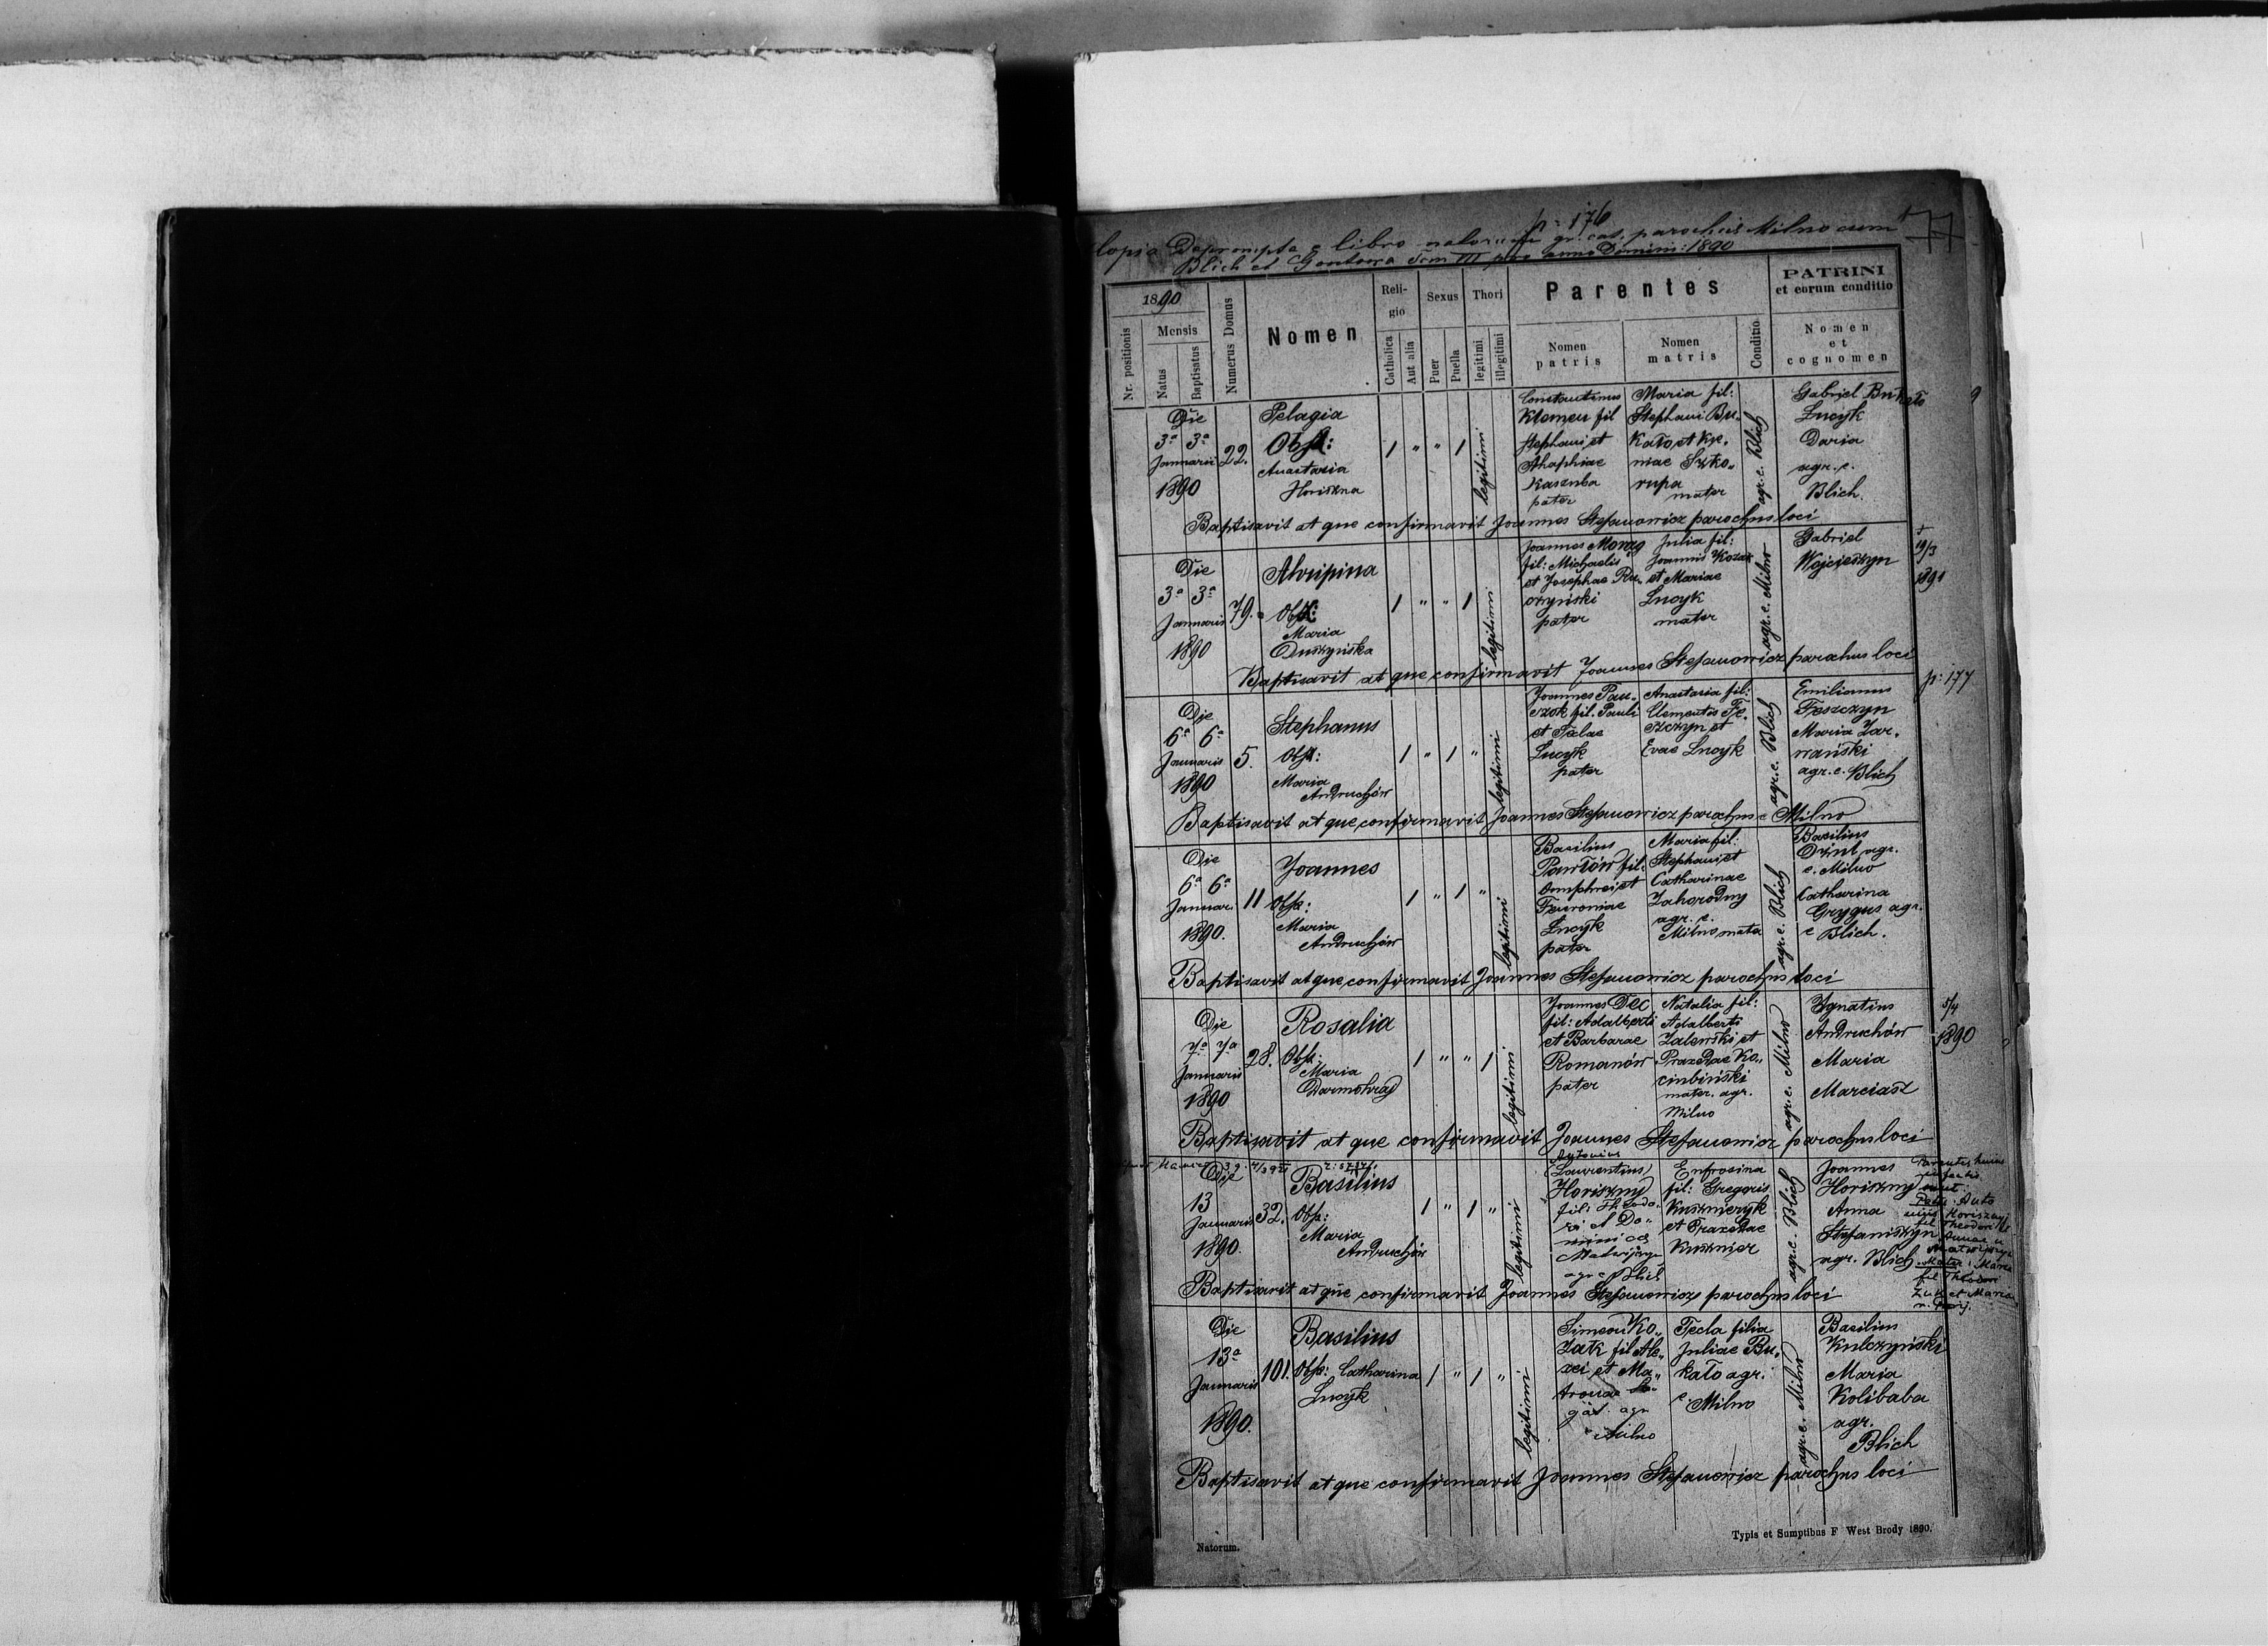 p: 176
77
Copia Deprompta e libro natorum gr. cat. parochiae Milno cum
Blich et Gontowa Tom III pro anno Domini: 1890
1890
Nr. positionis
Mensis
Natus
Baptisatus
Numerus Domus
Nomen
Religio
Catholica
Aut alia
Sexus
Puer
Puella
Thori
legitimi
illegitimi
Parentes
Nomen patris
Nomen matris
Conditio
PATRINI
et eorum conditio
Nomen
et
cognomen
Die
3a 3a
Januarii
1890
22.
Pelagia
Obst:
Anastasia
Horiszna
1 " " 1
legitimi
Constantinus
Klomeu fil
Stephani et
Ahaphiae
Kasznba
pater
Maria fil:
Stephani Bu-
kało et Xe-
niae Szko-
rupa
mater
agr. e. Blich
Gabriel Bukało
Lucyk
Daria
agr. e.
Blich.
Baptisavit atque confirmavit Joannes Stefanowicz parochus loci
Die
3a 3a
Januaris
1890
79.
Ahripina
Obst:
Maria
Duszyńska
1 " " 1
legitimi
Joannes Morag
fil: Michaelis
et Josephae Ru-
czyński
pater
Julia fil:
Joannis Kozak
et Mariae
Lucyk
mater
agr. e. Milno
Gabriel
Wojcieszyn
+
19/3
1891
Baptisavit atque confirmavit Joannes Stefanowicz parochus loci
p: 177
Die
6a 6a
Januaris
1890
5.
Stephanus
Obst:
Maria
Andruchów
1 " 1 "
legitimi
Joannes Pau-
szok fil. Pauli
et Teclae
Lucyk
pater
Anastasia fil:
Clementis Fe-
szczyn et
Evae Lucyk
agr. e. Blich
Emilianus
Feszczyn
Maria Zar-
wański
agr. e. Blich
Baptisavit atque confirmavit Joannes Stefanowicz parochus e Milno
Die
6a 6a
Januar.
1890.
11
Joannes
Obst:
Maria
Andruchów
1 " 1 "
legitimi
Basilius
Pawłów fil:
Omphrei et
Fewroniae
Lucyk
pater
Maria fil.
Stephani et
Catharinae
Zahorodny
agr. e.
Milno mata
agr. e. Blich
Basilius
Dziul agr.
e. Milno
Catharina
Grygus agr.
e Blich.
Baptisavit atque confirmavit Joannes Stefanowicz parochus loci
Die
7a 7a
Januaris
1890
28.
Rosalia
Obst:
Maria
Darmohraj
1 " " 1
legitimi
Joannes Dec
fil: Adalberti
et Barbarae
Romanów
pater
Natalia fil:
Adalberti
Zalewski et
Praxedae Ko-
cinbiński
mater. agr.
Milno
agr. e. Milno
Ignatius
Andruchów
Maria
Marciasz
5/4
1890
Baptisavit atque confirmavit Joannes Stefanowicz parochus loci
Die
13
Januaris
1890.
32.
Basilius
Obst:
Maria
Andruchów
1 " 1 "
legitimi
Antonius
(Laurentius)
Horiszny
fil: Theodo-
Matwijczyn
agr e Blich
Eufrosina
fil: Gregoris
Kusznieryk
et Praxedae
Kusznier
agr. e. Blich
Joannes
Horiszny
Anna
Stefaniszyn
agr. Blich
Parentes huius
infantis
sunt:
Pater: Anto
nius Horiszny
fil Theodori et
Annae n.
Matwijczyn
Mater: Maria
fil Theodori
Zuk et Maria
Baptisavit atque confirmavit Joannes Stefanowicz parochus loci
Die
13a
Januaris
1890.
101.
Basilius
Obst: Catharina
Lucyk
1 " 1 "
legitimi
Simeon Ko-
zak fil Ale-
xei et Ma-
tronae
agr
e Milno
Tecla filia
Juliae Bu-
kało agr.
e Milno
agr. e. Milno
Basilius
Kulczyński
Maria
Kolibaba
agr.
Blich
Baptisavit atque confirmavit Joannes Stefanowicz parochus loci
Natorum.
Typis et Sumptibus F West Brody 1890.